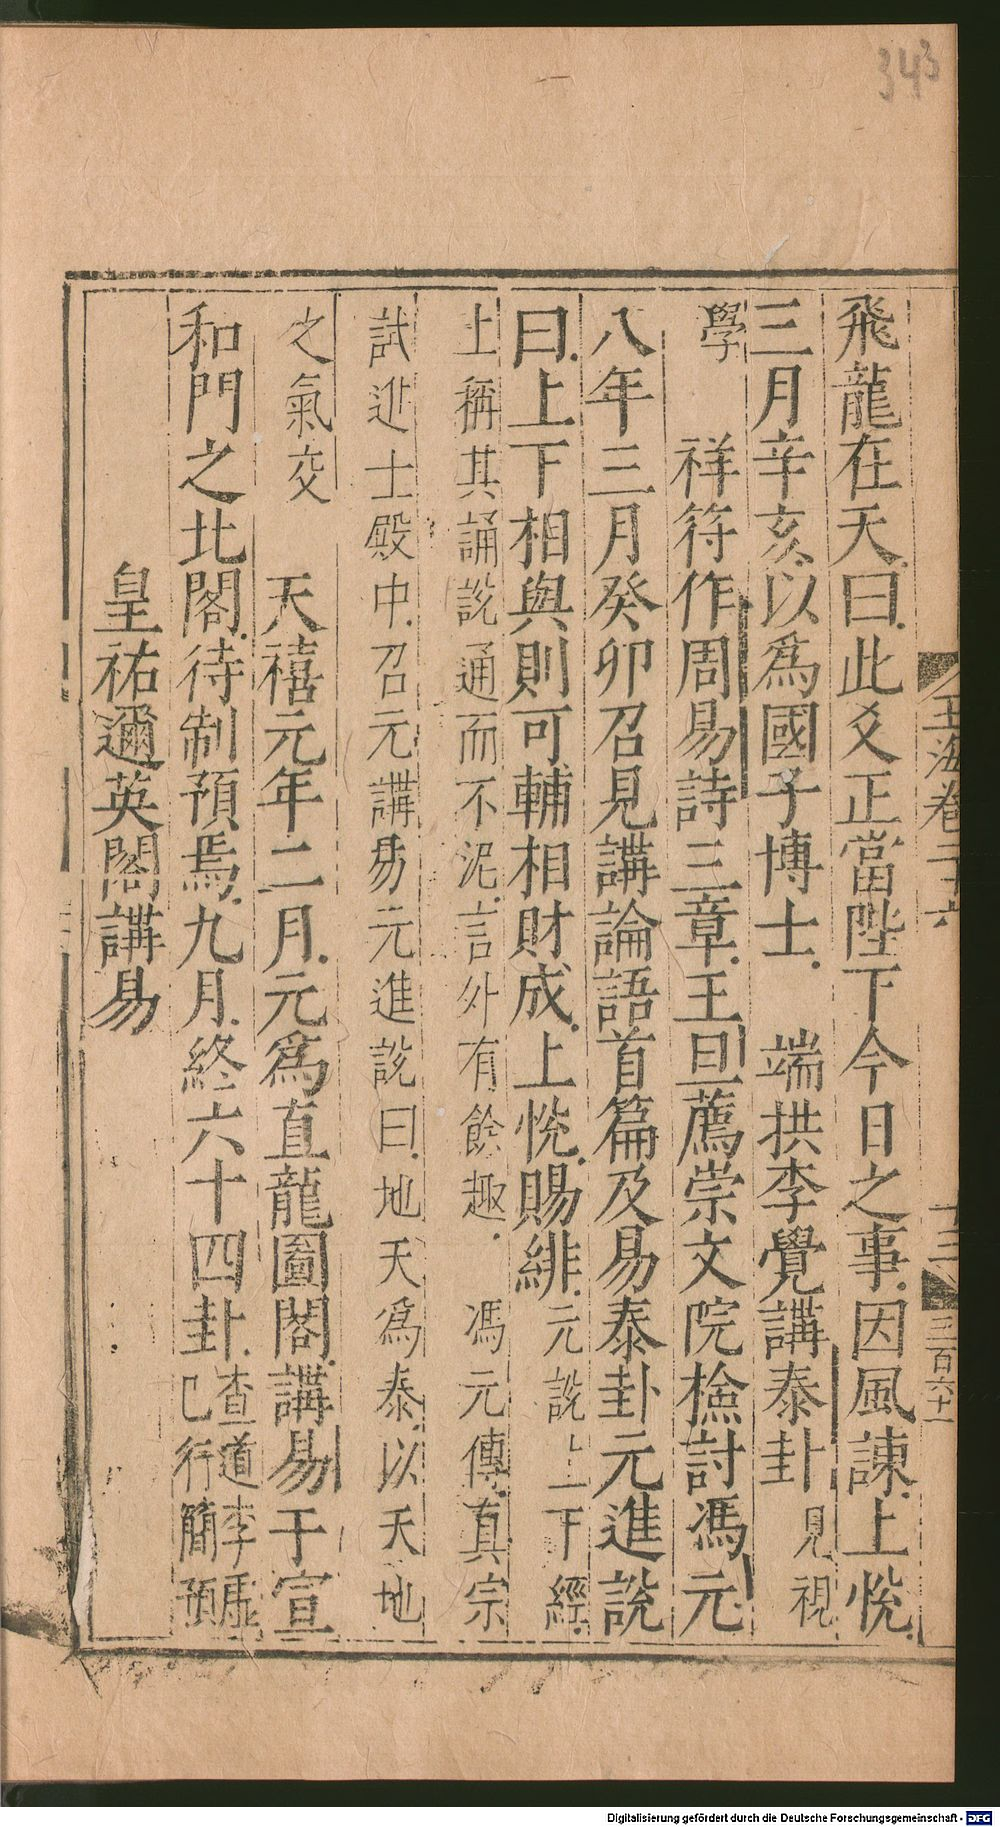 343
玉海卷二十六
十三
三百六十一
飛龍在天曰此爻正當陛下今日之事因風諫上悅
三月辛亥以爲國子博士 端拱李覺講泰卦見視
學 祥符作周易詩三章王旦薦崇文院檢討馮元
八年三月癸卯召見講論語首篇及易泰卦元進說
曰上下相與則可輔相財成上悅賜緋元說上下經
上稱其誦說通而不泥言外有餘趣 馮元傳真宗
試進士殿中召元講易元進說曰地天爲泰以天地
之氣交 天禧元年二月元爲直龍圖閣講易于宣
和門之北閣待制預焉九月終六十四卦查道李虛
己行簡預
皇祐邇英閣講易
Digitalisierung gefördert durch die Deutsche Forschungsgemeinschaft - DFG